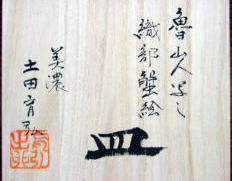 魯山人写し
織部蟹絵
皿
美濃
土田育弘